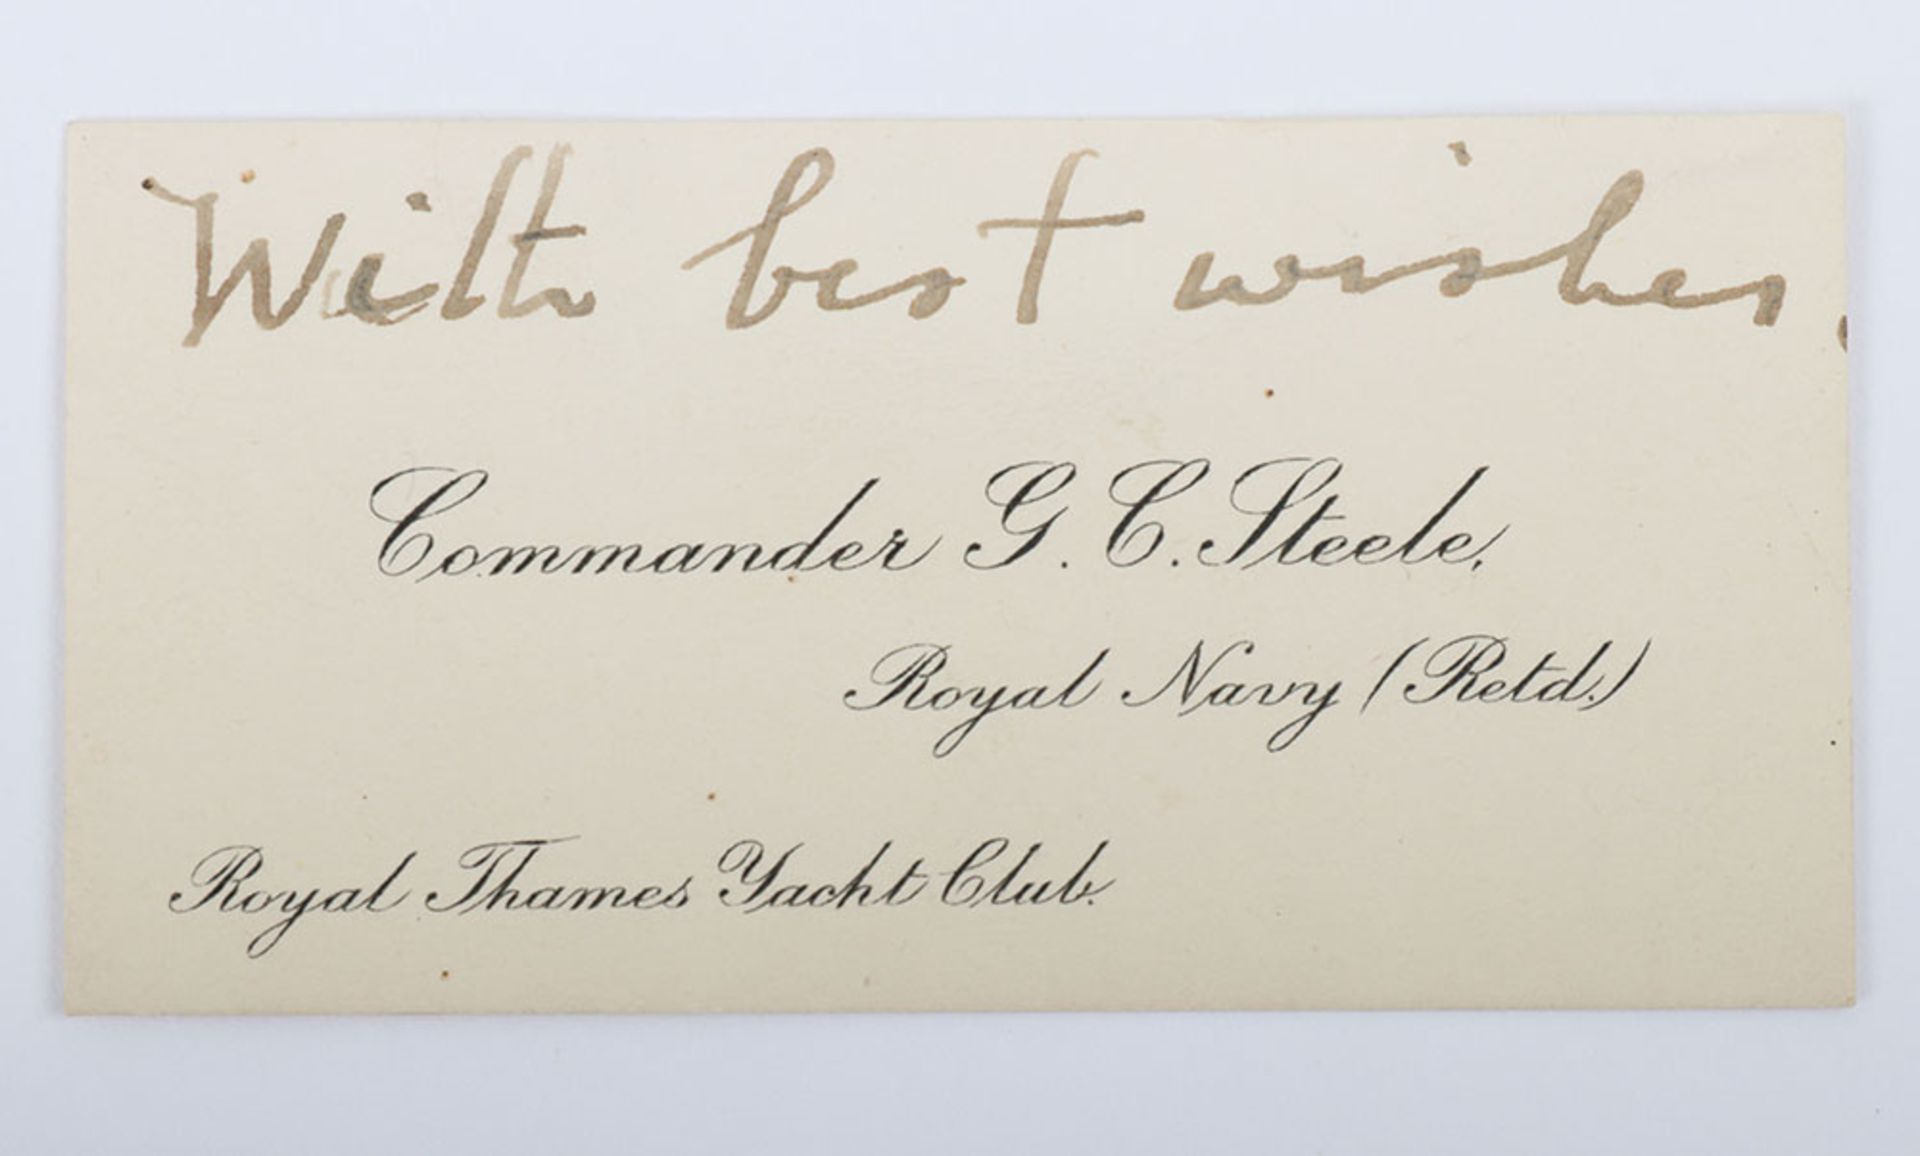 With best wishes.
Commander G. C. Steele,
Royal Navy (Retd.)
Royal Thames Yacht Club.